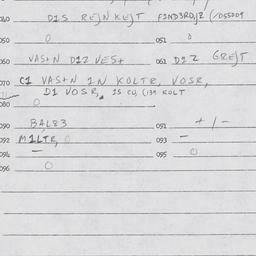 040 D1S REJN KEJT F2ND3RD,2 (/055009
050 0 051 0
060 VAS+N D1Z VES+ 061 D1Z GREJT
070 C1 VAS+N 1N KOLTR, VOSR,
D1 VOSR, 1S CU, (134 KOLT
080 0
090 BAL83 091 + / -
092 M1LTR, 0 093 -
094 - 095 0
096 0